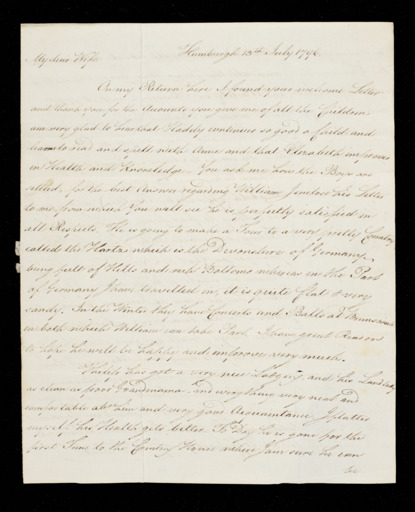 My dear Wife Hamburgh 13th July 1796.
On my Return here I found your welcome Letter
and thank you for the Accounts you give me of all the Children
am very glad to hear that continues so good a Child and
learns to read and spell with Anne and that Elizabeth improves
in Health and Knowledge. You ask me how the Boys are
settled, for the best Answer regarding William I inclose his Letter
to me from which You will see he is perfectly satisfied in
all Respects. He is going to make a Tour to a very pretty Country
called the Hartz which is the Devonshire of Germany,
being full of Hills and rich Bottoms whereas in this Part
of Germany I have travelled in, it is quite flat & very
sandy. In the Winter they have Concerts and Balls at Brunswick
in both which William can take Part. I have great Reason
to hope he will be happy and improve very much.
has got a very nice Lodging, and his Landlady
as clean as poor Grandmama and every thing very neat and
comfortable about him and very good Acquaintance I flatter
myself his Health gets better. To Day he is gone for the
first Time to the Country House where I am sure he can
be